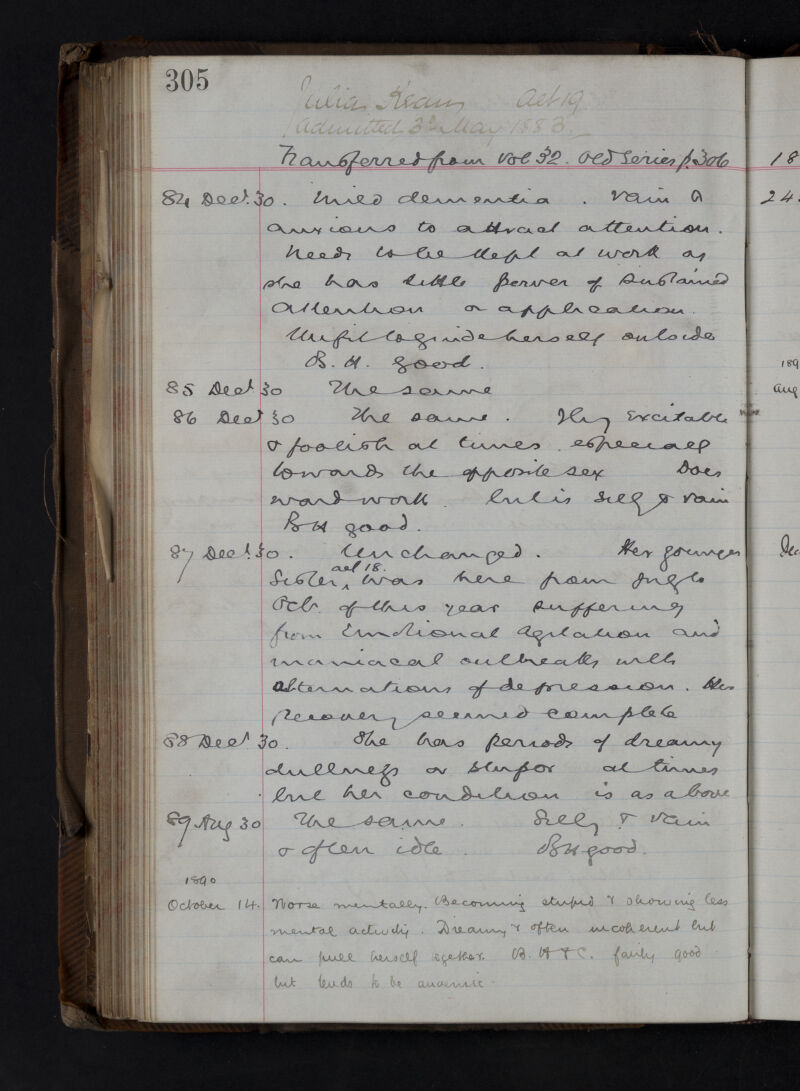 305
Julia Aet 19
Admitted 3rd May 1883.
Transferred from Vol 32. Old Series p. 306
84 Dect. 30. Mild dementia. Vain &
anxious to attract attention.
Needs to be kept at work as
she has little power of sustained
attention or application.
Unfit to guide herself outside
B. H. good.
85 Dect 30 The same
86 Dect 30 The same. Very excitable
& foolish at times especially
towards the opposite sex Does
ward work. but is silly & vain
B H good.
87 Dect. 30. Unchanged. Her younger
Sister, aet 18. was here from to
Oct. of this year suffering
from Emotional Agitation and
maniacal outbreaks with
alternations of depression. Her
Recovery seemed complete
88 Dect 30. She has periods of dreamy
dullness or stupor at times
but her condition is as above
89 Aug 30 The same. Silly & vain
& often idle. B H good.
1890
October 14. Worse mentally. Becoming stupid & showing less
mental activity. Dreamy & often incoherent but
can pull herself together. B. H & C. fairly good
but tends to be anaemic.
18
24.
189
Aug
Dec